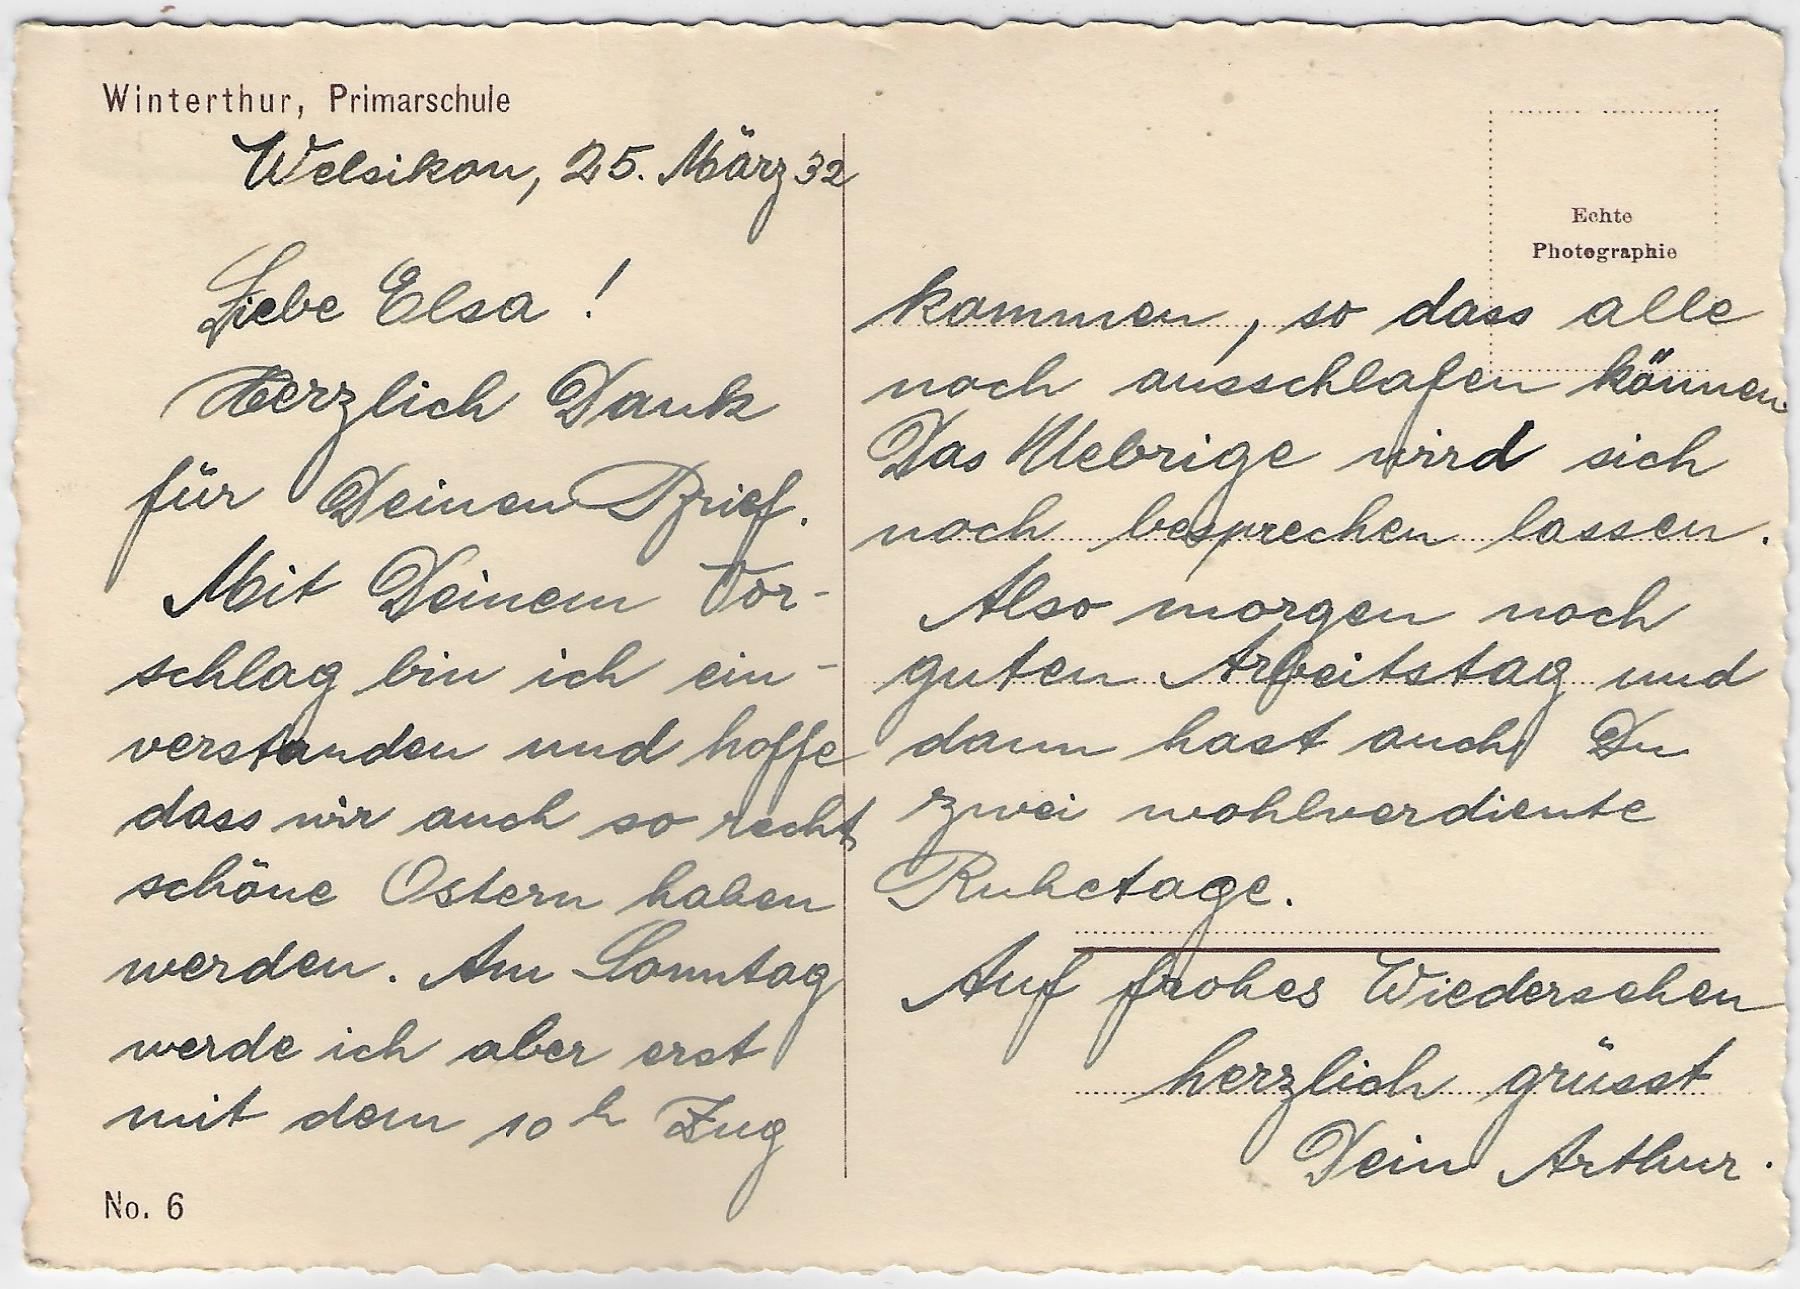 Winterthur, Primarschule
Welsikon, 25. März 32
Liebe Elsa !
Herzlich Dank
für Deinen Brief.
Mit Deinem Vor-
schlag bin ich ein-
verstanden und hoffe
dass wir auch so recht
schöne Ostern haben
werden. Am Sonntag
werde ich aber erst
mit dem 10 h Zug
No. 6
Echte
Photographie
kommen, so dass alle
noch ausschlafen können.
Das Uebrige wird sich
noch besprechen lassen.
Also morgen noch
guten Arbeitstag und
dann hast auch Du
zwei wohlverdiente
Ruhetage.
Auf frohes Wiedersehen
herzlich grüsst
Dein Arthur.